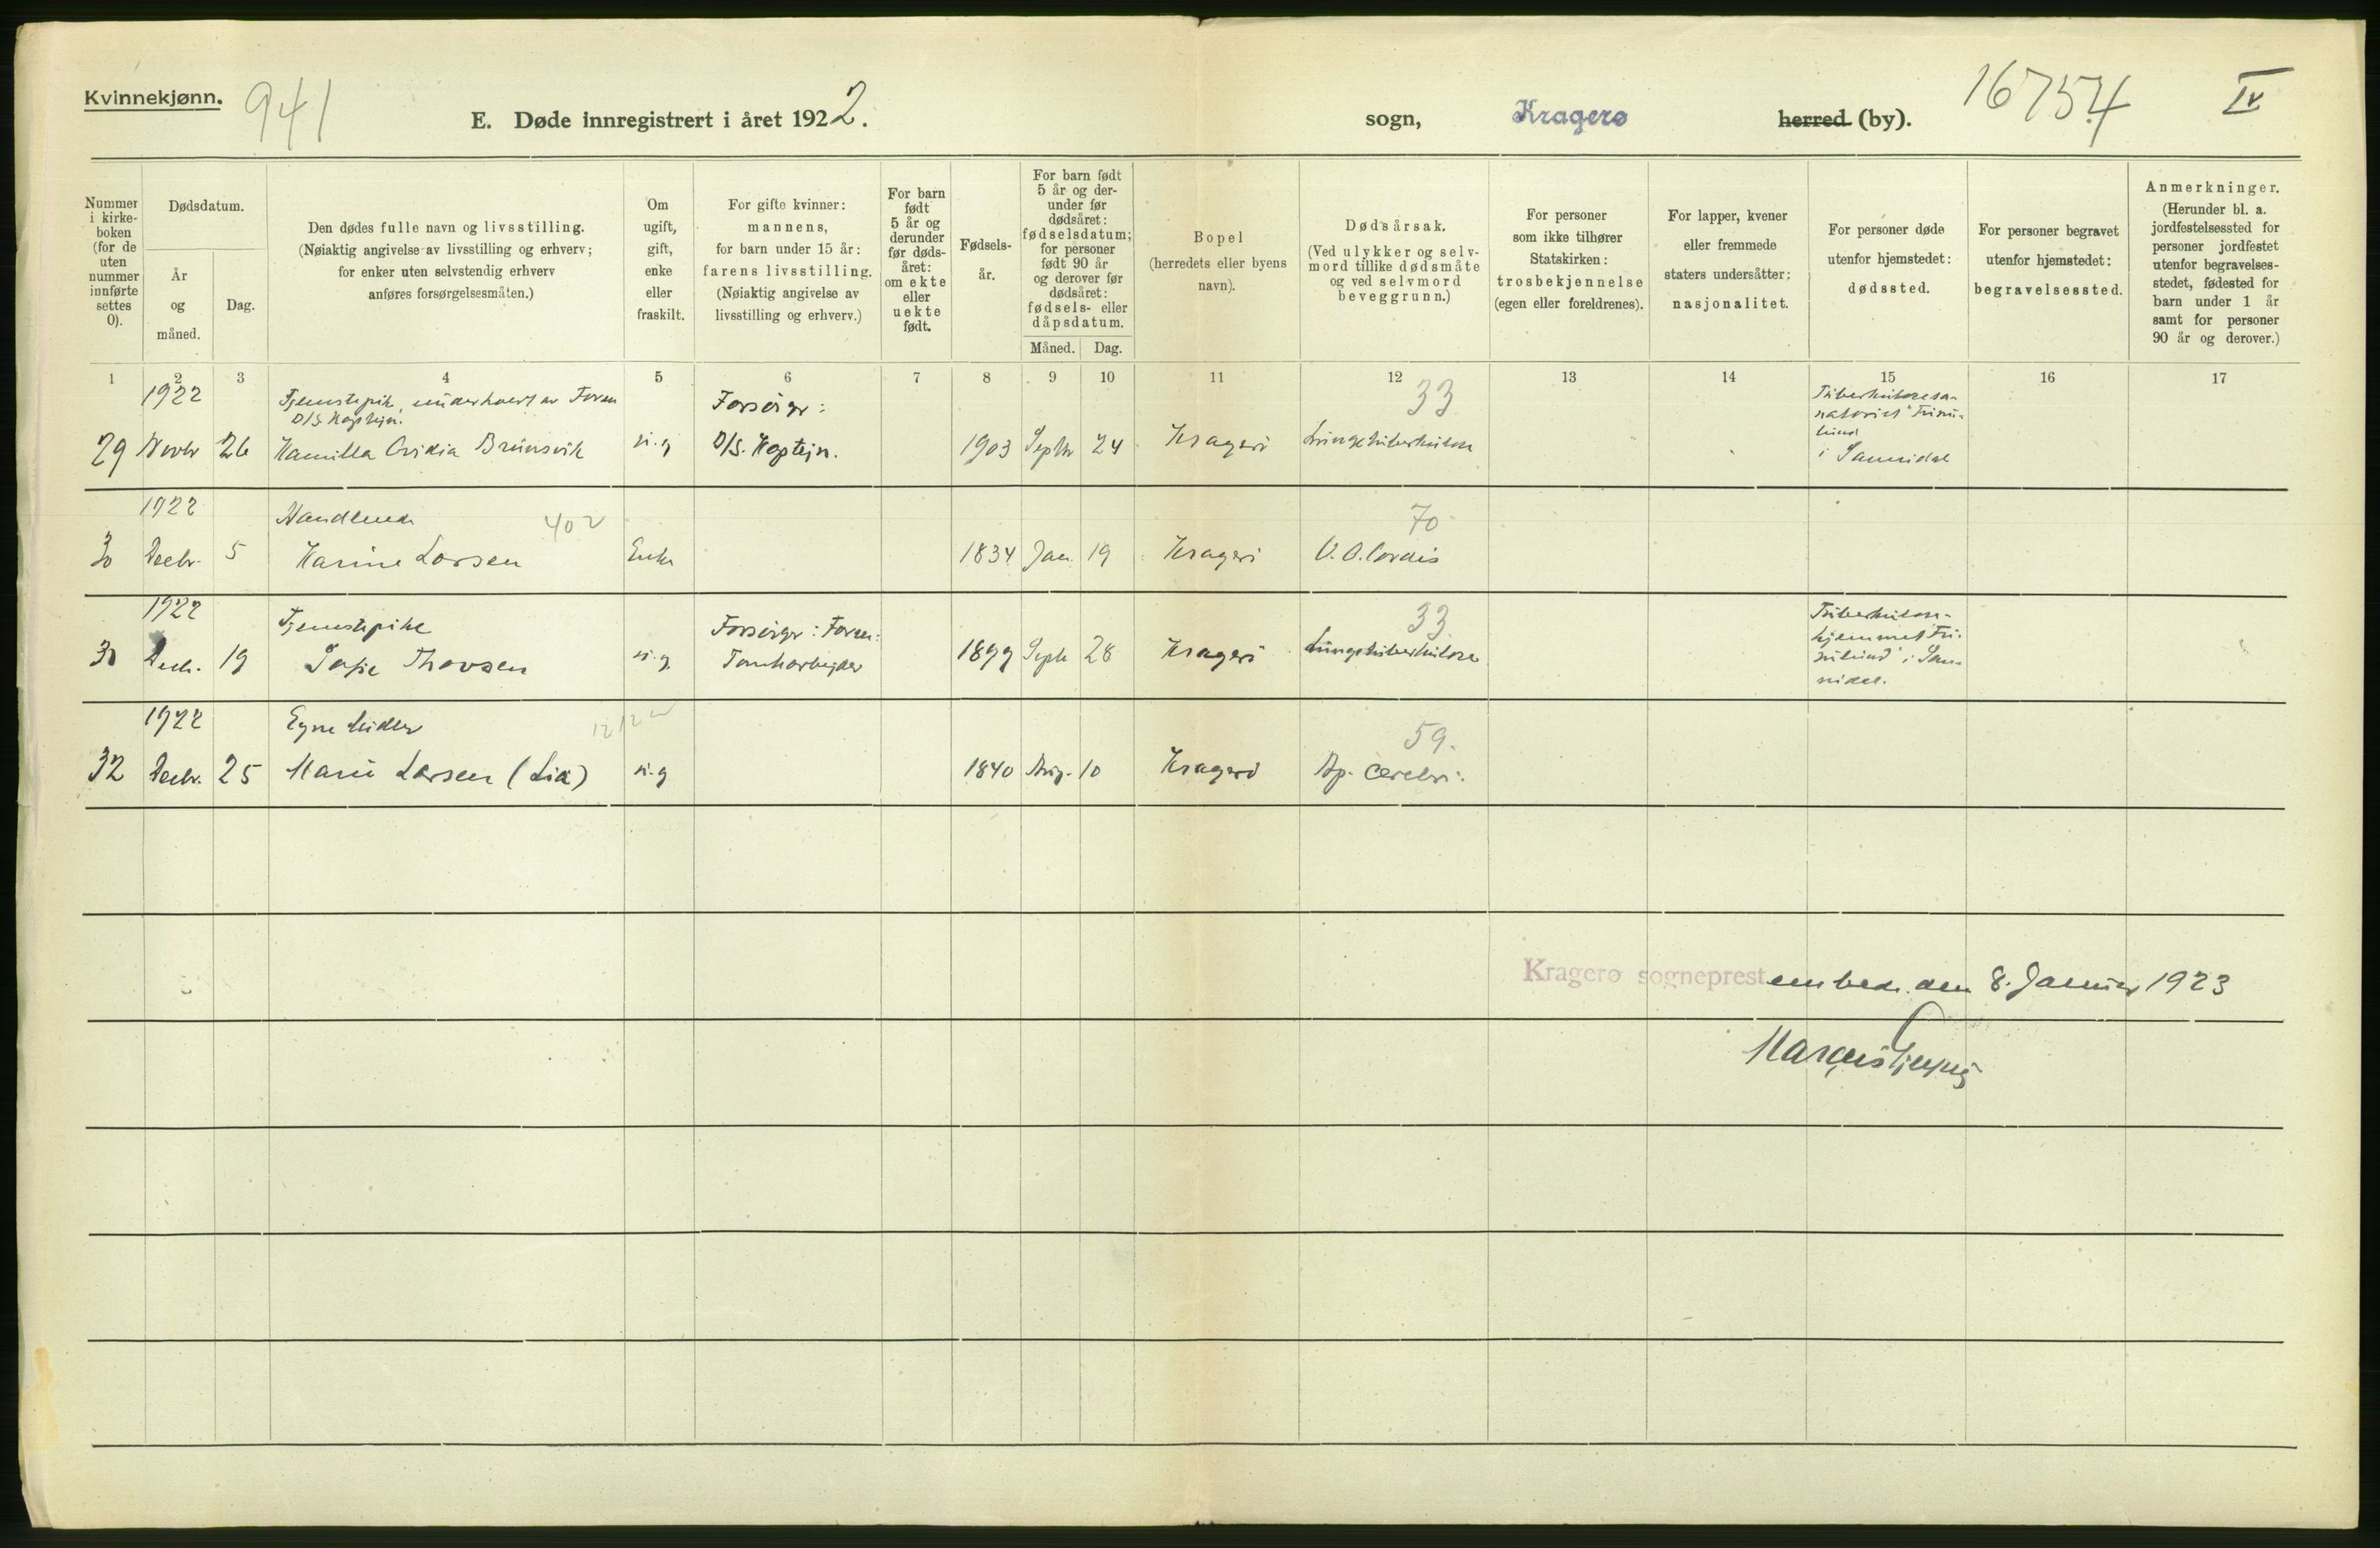 Kvinnekjønn.
941
E. Døde innregistrert i året 1922.
sogn, Kragerø herred (by).
16754
IV
Nummer i kirke-boken (for de uten nummer innførte settes 0).
Dødsdatum.
År og måned.
Dag.
Den dødes fulle navn og livsstilling.
(Nøiaktig angivelse av livsstilling og erhverv;
for enker uten selvstendig erhverv
anføres forsørgelsesmåten.)
Om ugift, gift, enke eller fraskilt.
For gifte kvinner:
mannens,
for barn under 15 år:
farens livsstilling.
(Nøiaktig angivelse av
livsstilling og erhverv.)
For barn født 5 år og derunder før døds-året: om ekte eller uekte født.
Fødsels-år.
For barn født
5 år og der-
under før
dødsåret:
fødselsdatum;
for personer
født 90 år
og derover før
dødsåret:
fødsels- eller
dåpsdatum.
Måned. Dag.
Bopel
(herredets eller byens
navn).
Dødsårsak.
(Ved ulykker og selv-
mord tillike dødsmåte
og ved selvmord
beveggrunn.)
For personer
som ikke tilhører
Statskirken:
trosbekjennelse
(egen eller foreldrenes).
For lapper, kvener
eller fremmede
staters undersåtter;
nasjonalitet.
For personer døde
utenfor hjemstedet:
dødssted.
For personer begravet
utenfor hjemstedet:
begravelsessted.
Anmerkninger.
(Herunder bl. a.
jordfestelsessted for
personer jordfestet
utenfor begravelses-
stedet, fødested for
barn under 1 år
samt for personer
90 år og derover.)
1 2 3 4 5 6 7 8 9 10 11 12 13 14 15 16 17
1922 Forsørger: 33
D/S. Kaptejn.
29 Novbr 26 Kamilla Brunsvik u.g D/S. Kaptejn. 1903 Septbr 24 Kragerø Lungetuberkulose
i Sannidal
1922 Handlende 402 70
30 Decbr. 5 Karine Larsen Enke 1834 Jan. 19 Kragerø V. O. Cordis
1922 Tjenestepike Forsørger: Faren: 33
Decb. 19 Thovsen u.g. Tomtearbejder 1899 Septb 28 Kragerø Lungetuberkulose
1922 Egne Midler 59.
32 Decbr. 25 Marie Larsen (Lia) u.g 1840 Aug. 10 Kragerø Ap. Cerebri.
Kragerø sogneprestembede. den 8. Januar 1923